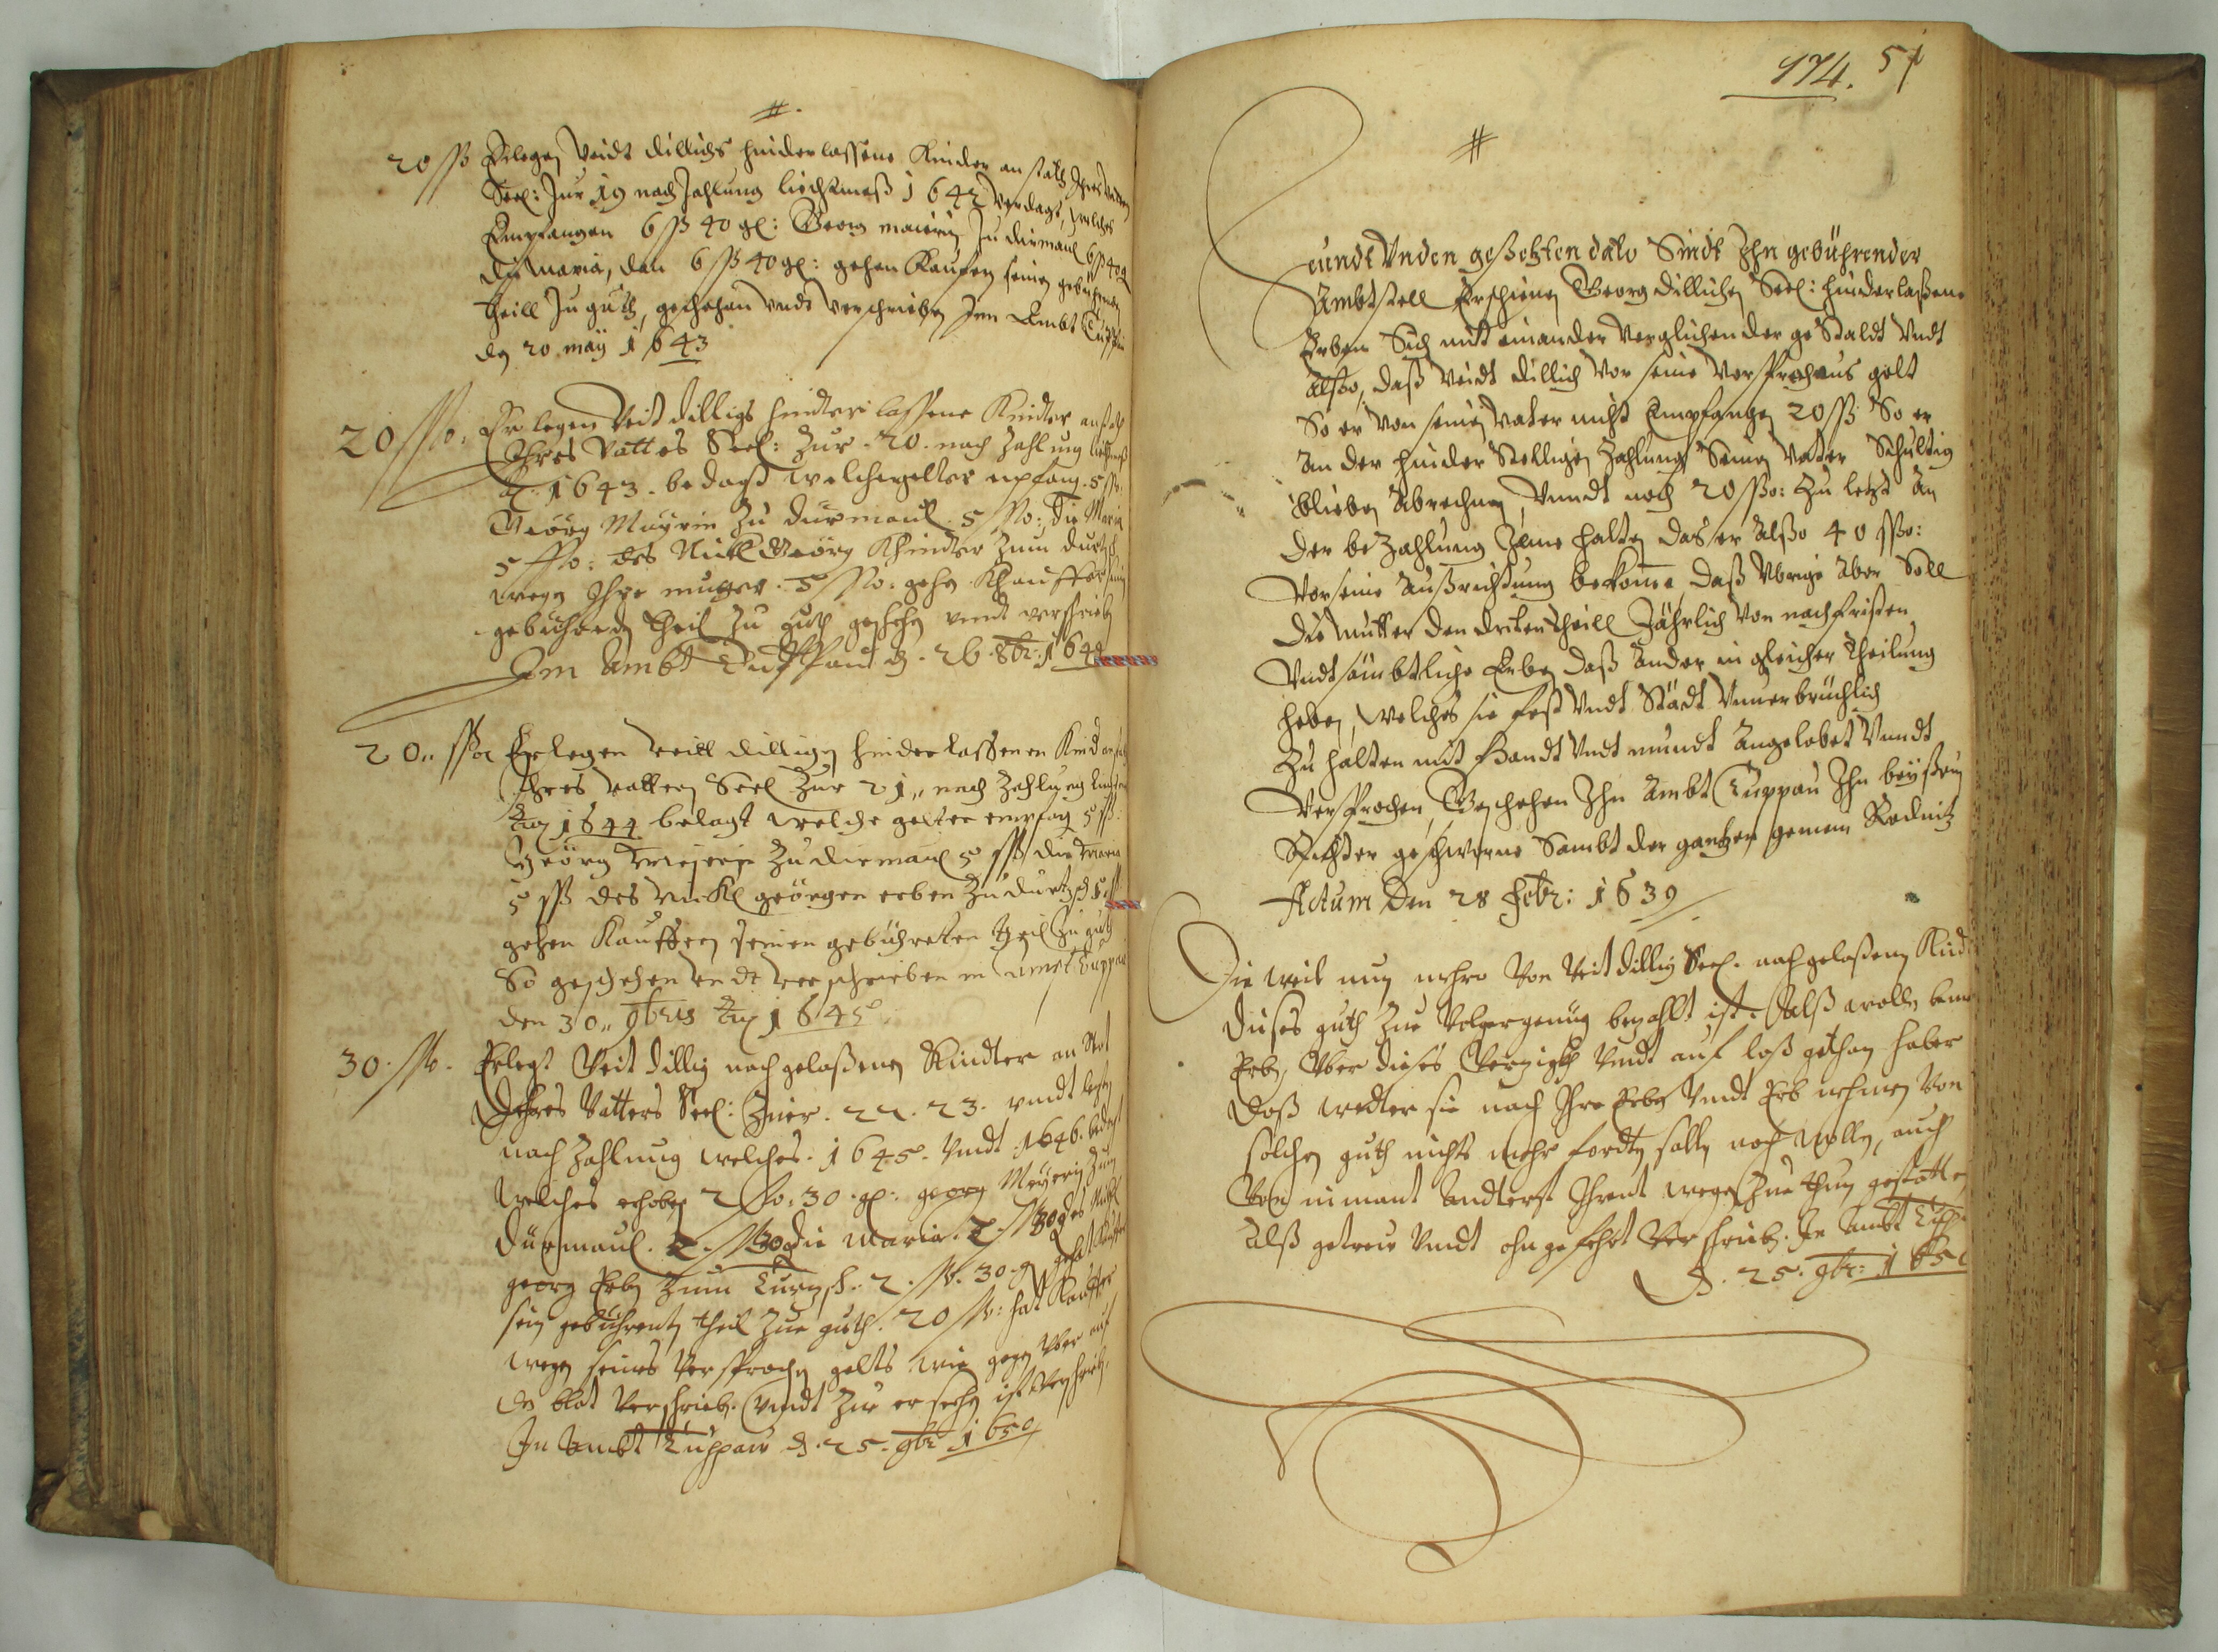 #.
20 ß Erlegen Veidt dillichs hinderlassene Kinder an stath Ihres Vatters
Seel: Zur 19 nach Zahlung liechtmeß 1642 verdagt, welches
Empfangen 6 ß 40 gl: Georg maierin Zu dirmaul 6 ß 40 g
die Maria, den 6 ß 40 gl: gehen Kauffer seinen gebührenden
theill Zu guth, geschehen vndt verschrieben Im Ambt Tuppau
den 20 may 1643
20 ßo: Er legen Veit dilligs hindter lassene Kindter anstath
Ihres Vatters Seel: Zur 20. nach Zahlung liechtmeß
A: 1643. bedagt welche gelter empfang. 5 ßo:
Geörg Mayrin Zu durmaul 5 ßo: die Maria
5 ßo: des Nickl Geörg Khindter Zum
wegen Ihre mutter. 5 ßo: gehn Khauffer sein
gebuhrendn theil Zu guth geschehn vndt verschriebn
Im Ambt Tuppau d. 26. 8br: 1644
20,, ßo Erlegen Veitt dilligen hinderlassenen Kinder anstath
Ihres Vatters Seel Zur 21,, nach Zahlung
Ao 1644 betagt welche gelter empfag 5 ß:
Geörg Meyerin Zu diemaul 5 ß die Maria
5 ß des Nickl geörgen erben Zu 5 ß
gehen Kauffern seinen gebühretten theil Zu guth
So geschehen vndt verschrieben im Ambt Tuppau
den 30,, 9bris Ao 1645
30. ßo. Erlegt Veit dillig nach gelaßenen Kindter an Stat
Ihres Vatters Seel: Zuer. 22. 23. vndt letzten
nach Zahlung welches. 1645. Vndt 1646. bedagt
welches erhoben 2 ßo: 30. gl: georg Meyerin Zum
dürmaul. 2. ß 30 g die Maria. 2. ß 30 g des Nickl
georg Erbn Zum 2. ßo. 30. g gehet Kauffer
sein gebührentn theil Zue guth. 20 ßo: hat Kauffer
wegen seines Versprochn gelts wie gegen Vber auf
dn blat Verschriebn. vndt Zue ersehn ist Verschriebn,
In Ambt Tuppau d. 25. 9br 1650
974. 51
#
Heundt Vnden geßetzten dato Sindt Ihn gebührender
Ambtstell Erschienen Georg dillichen Seel: hinderlaßene
Erben Sich mit einander Verglichen der ge Staldt Vndt
alßo, daß Veidt dillich Vor seine Versprochenes gelt
So er Von seinen Vater nicht Empfangen 20 ß So er
an der hinder Stelligen Zahlung Seinen Vater Schultig
blieben Abrechnen, Vundt noch 20 ßo: Zu letzt An
der be Zahlung Inne halten das er Alßo 40 ßo:
Vor seine Außrichtung bekome, daß Vbrige Aber Soll
die Mutter den driten theill Jährlich Von nachfristen
Vndt sämbtliche Erben daß Ander in gleicher theilung
heben, welches sie fest Vndt Städt Vnuerbrüchlich
Zu halten mit Handt Vndt mundt Angelobet Vundt
Versprochen, Geschehen Ihn Ambt Tuppau Ihn beyßein
Richter geschworne Sambt der gantzen gemein Rednitz
Actum den 28 Febr: 1639
Die weil nun mehro Von Veit dillig Seel. nach gelaßenen Kind
dieses guth Zue Volgergenüg bezahlt ist. Alß wolln
Erbn, Vber dieses Verzicht Vndt auf laß gethan haben
daß wedter sie noch Ihre Erbn Vndt Erb nehmen Von
solchen guth nichts mehr fordtn solln noch wolln, auch
Von nimant Andterst Ihrent wegen Zue thun gestatten
Alß getreu Vndt ohn gefehrt Verschriebn. In Ambt Tupp
d. 25. 9br: 1650